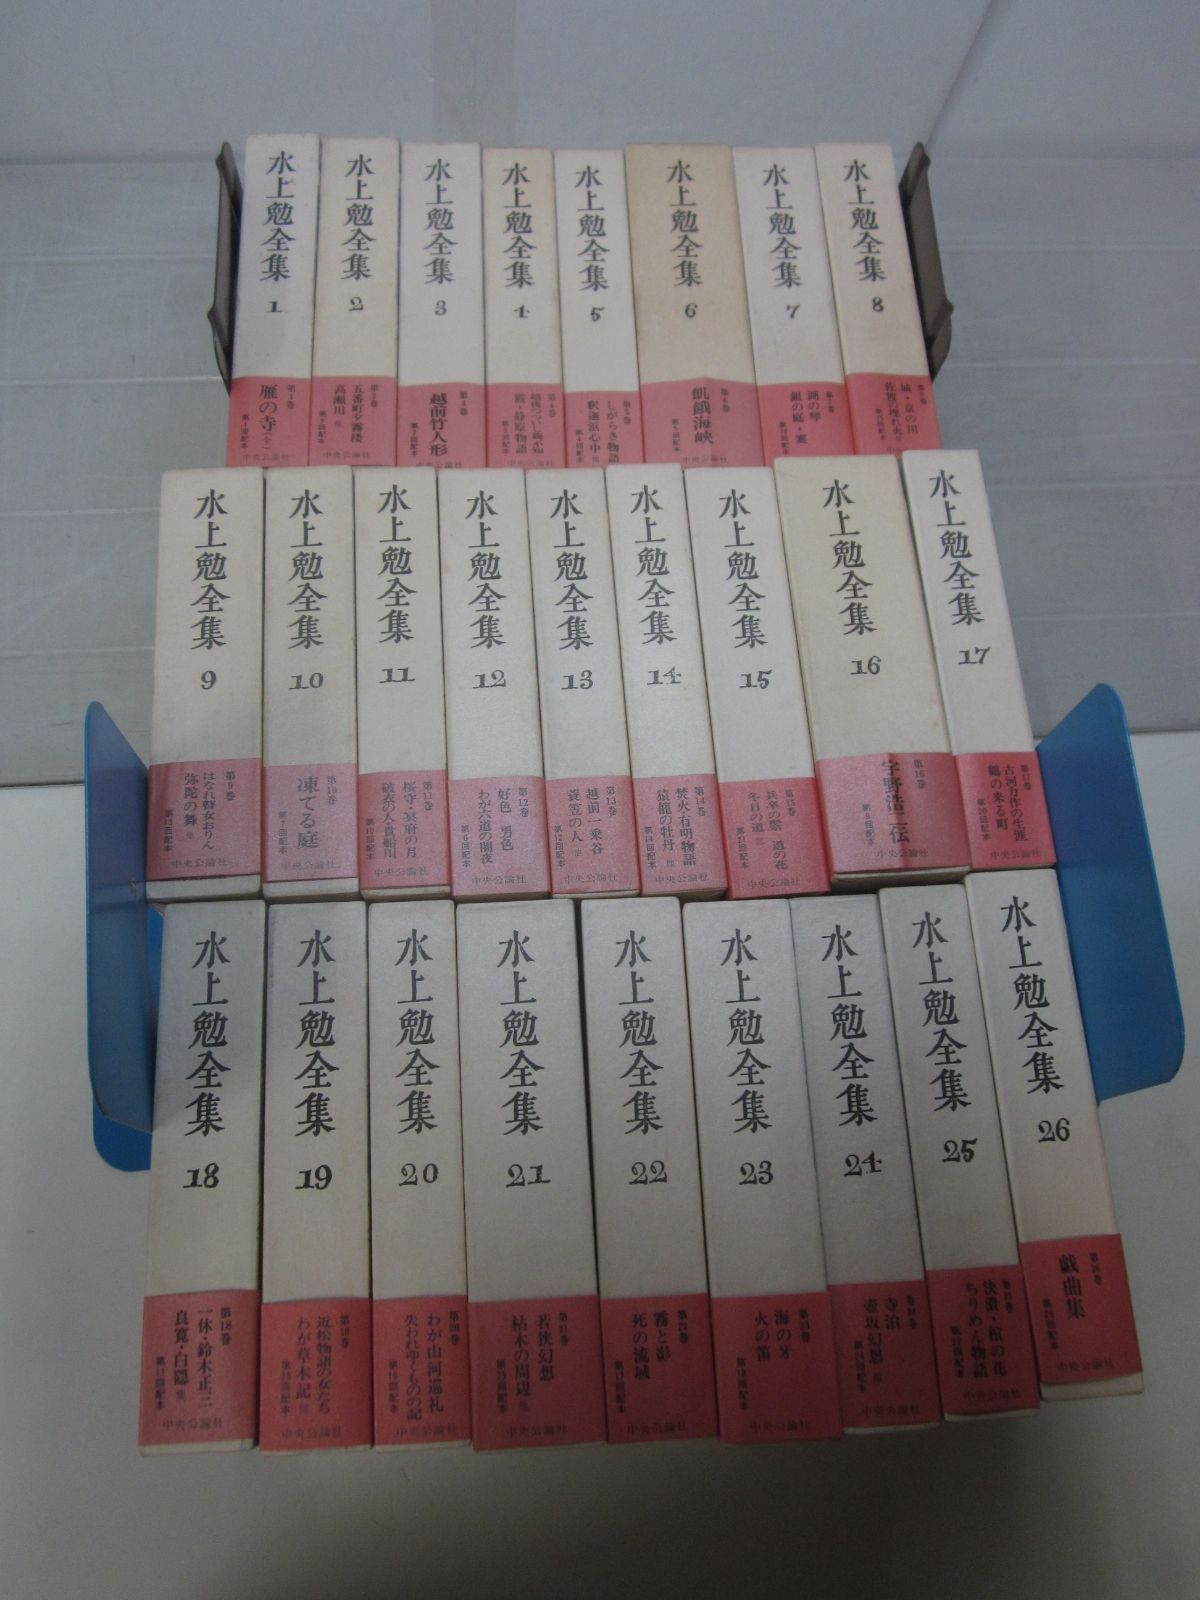 水上勉全集
1
第1巻
雁の寺(全)
中央公論社
水上勉全集
2
第2巻
五番町夕霧楼
高瀬川 他
中央公論社
水上勉全集
3
第3巻
越前竹人形
水上勉全集
4
第4巻
中央公論社
水上勉全集
5
第5巻
しがらき物語
釈迦浜心中 他
中央公論社
水上勉全集
6
第6巻
飢餓海峡
第5回配本
中央公論社
水上勉全集
7
第7巻
湖の琴
銀の庭・案
水上勉全集
8
第8巻
城・京の川
佐渡の埋れ火 他
中央公論社
水上勉全集
9
第9巻
はなれ瞽女おりん
弥陀の舞 他
第13回配本
中央公論社
水上勉全集
10
第10巻
凍てる庭
第7回配本
中央公論社
水上勉全集
11
第11巻
桜守・冥府の月
破衣の人・貴船川
第10回配本
中央公論社
水上勉全集
12
第12巻
好色 男色
わが六道の闇夜
第6回配本
中央公論社
水上勉全集
13
第13巻
越前一乗谷
蓑笠の人 他
第12回配本
中央公論社
水上勉全集
14
第14巻
焚火・有明物語
猿籠の牡丹 他
第14回配本
中央公論社
水上勉全集
15
第15巻
兵卒の鬃 道の花
冬日の道 他
第21回配本
中央公論社
水上勉全集
16
第16巻
宇野浩二伝
第9回配本
中央公論社
水上勉全集
17
第17巻
古河力作の生涯
鶴の来る町
第20回配本
中央公論社
水上勉全集
18
第18巻
一休・鈴木正三
良寛・白隠 他
第11回配本
中央公論社
水上勉全集
19
第19巻
近松物語の女たち
わが草木記 他
中央公論社
水上勉全集
20
第20巻
わが山河巡礼
失われゆくものの記
第19回配本
中央公論社
水上勉全集
21
第21巻
若狭幻想
枯木の周辺 他
中央公論社
水上勉全集
22
第22巻
霧と影
死の流域
第17回配本
中央公論社
水上勉全集
23
第23巻
海の牙
火の笛
第18回配本
中央公論社
水上勉全集
24
第24巻
寺泊
壷坂幻想 他
中央公論社
水上勉全集
25
第25巻
決潰・棺の花
ちりめん物語
中央公論社
水上勉全集
26
第26巻
戯曲集
中央公論社